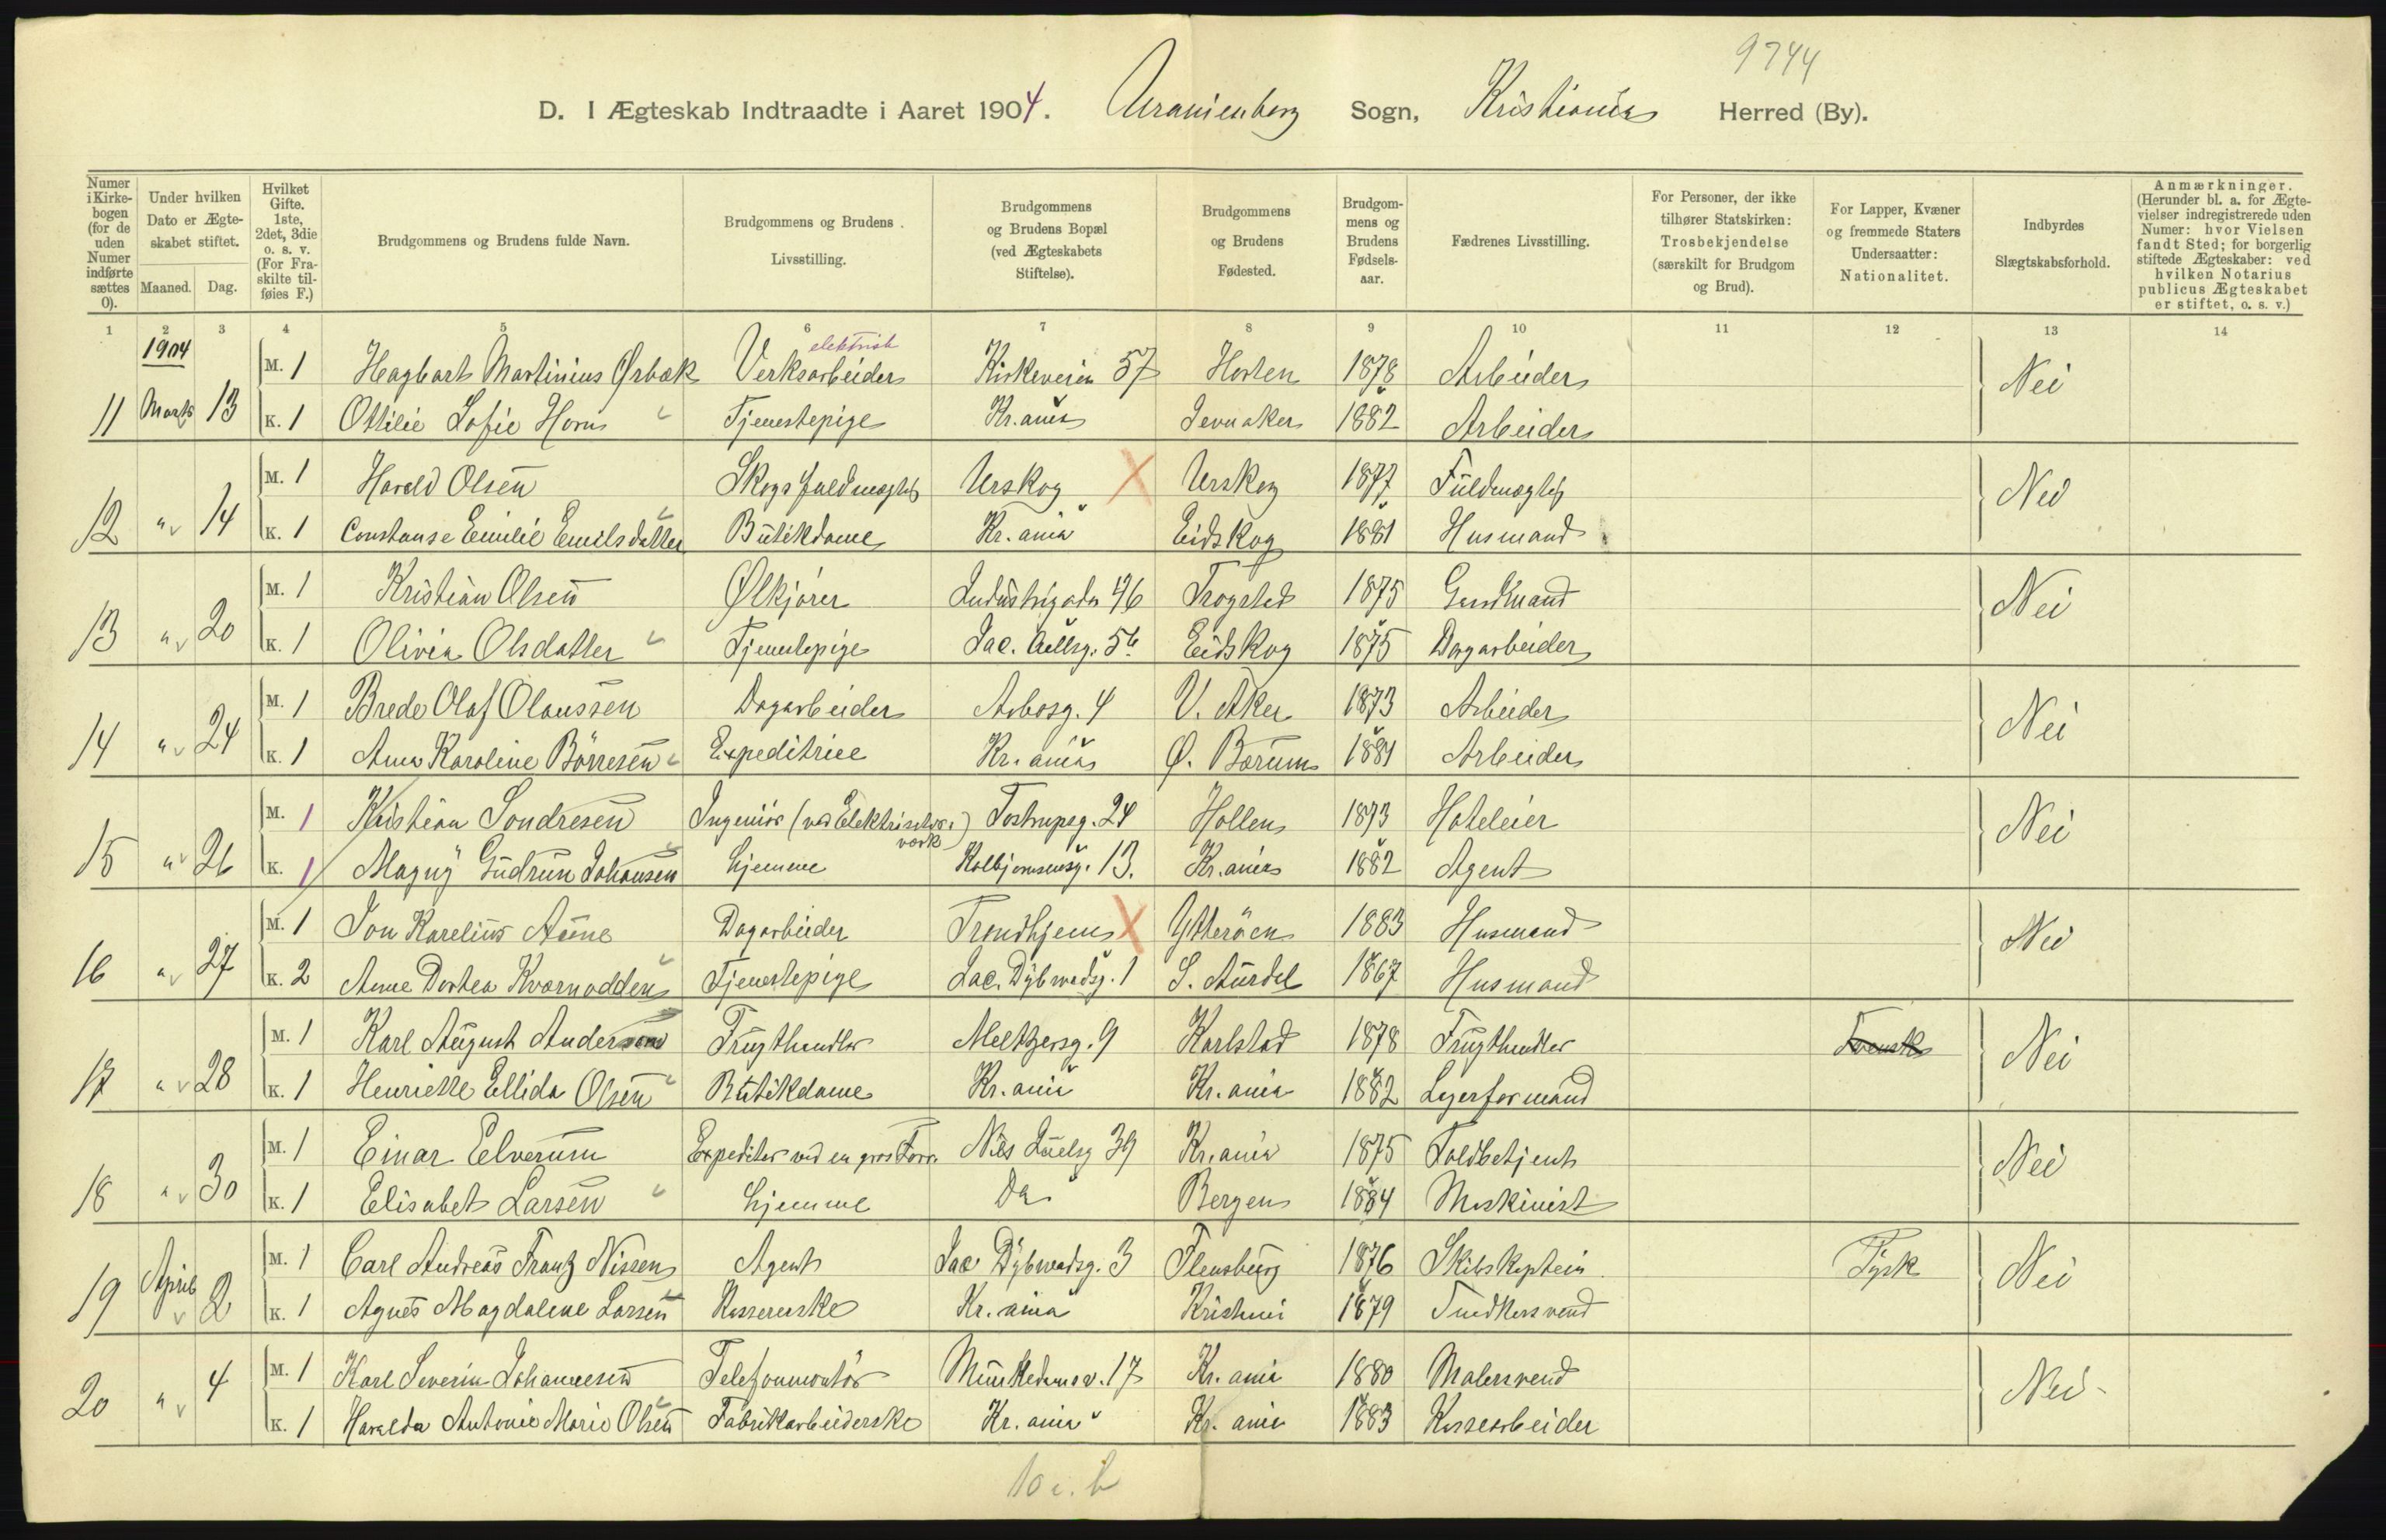 9744
D. I Ægteskab Indtraadte i Aaret 1904. Uranienborg Sogn, Kristiania Herred (By).
Numer i Kirkebogen (for de uden Numer indførte sættes 0).
Under hvilken Dato er Ægteskabet stiftet.
Maaned. Dag.
Hvilket Gifte. 1ste, 2det, 3die o. s. v. (For Fraskilte tilføies F.)
Brudgommens og Brudens fulde Navn.
Brudgommens og Brudens Livsstilling.
Brudgommens og Brudens Bopæl (ved Ægteskabets Stiftelse).
Brudgommens og Brudens Fødested.
Brudgommens og Brudens Fødselsaar.
Fædrenes Livsstilling.
For Personer, der ikke tilhører Statskirken: Trosbekjendelse (særskilt for Brudgom og Brud).
For Lapper, Kvæner og fremmede Staters Undersaatter: Nationalitet.
Indbyrdes Slægtskabsforhold.
Anmærkninger. (Herunder bl. a. for Ægtevielser indregistrerede uden Numer: hvor Vielsen fandt Sted; for borgerlig stiftede Ægteskaber: ved hvilken Notarius publicus Ægteskabet er stiftet, o. s. v.)
1 2 3 4 5 6 7 8 9 10 11 12 13 14
1904
elektrisk
M. 1 Hagbart Martinius Ørbæk Verksarbeider Kirkeveien 57 Horten 1878 Arbeider Nei
11 Marts 13 K. 1 Ottilie Sofie Horn Tjenestepige Kr.ania Jevnaker 1882 Arbeider
M. 1 Harald Olsen Skogsfuldmægtig Urskog X Urskog 1877 Fuldmægtig Nei
12 " 14 K. 1 Constanse Emilie Emilsdatter Butikdame Kr.ania Eidskog 1881 Husmand
M. 1 Kristian Olsen Ølkjører Industrigaden 46 Trøgsted 1875 Gaardmand Nei
13 " 20 K. 1 Olivia Olsdatter Tjenestepige Jac. Aallsg. 56 Eidskog 1875 Dagarbeider
M. 1 Brede Olaf Olaussen Dagarbeider Arbosg. 4 V. Aker 1873 Arbeider Nei
14 " 24 K. 1 Anna Karoline Børresen Expeditrice Kr.ania Ø. Bærum 1881 Arbeider
M. 1 Kristian Sondresen Ingeniør (ved Elektricitets- Tostrupsg. 24 Hollen 1873 Hoteleier Nei
værk)
15 " 26 K. 1 Magny Gudrun Johansen hjemme Kolbjørnsensg. 13. Kr.ania 1882 Agent
M. 1 Jon Karelius Aune Dagarbeider Trondhjem X Ytterøen 1883 Husmand Nei
16 " 27 K. 2 Anne Dortea Kværnodden Tjenestepige Jac. Dybwadsg. 1 S. Aurdal 1867 Husmand
M. 1 Karl August Anderson Frugthandler Meltzersg. 9 Karlstad 1878 Frugthandler Svensk Nei
17 " 28 K. 1 Henriette Ellida Olsen Butikdame Kr.ania Kr.ania 1882 Lagerformand
M. 1 Einar Elverum Expeditør ved en gros Forr. Niels Juelsg 39 Kr.ania 1875 Toldbetjent Nei
18 " 30 K. 1 Elisabet Larsen hjemme Do Bergen 1884 Maskinist
M. 1 Carl Andreas Frantz Nissen Agent Jac Dybwadsg. 3 Flensburg 1876 Skibskaptein Tysk Nei
19 April 2 K. 1 Agnes Magdalene Larsen Kassererske Kr.ania Kristiania 1879 Snedkersvend
M. 1 Karl Severin Johannesen Telefonmontør Munkedamsv. 17 Kr.ania 1880 Malersvend Nei
20 " 4 K. 1 Haralda Antonie Marie Olsen Fabrikarbeiderske Kr.ania Kr.ania 1883 Kassearbeider